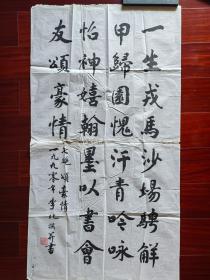 一生戎馬沙場騁解
甲歸園愧汗青吟咏
怡神嬉翰墨以書會
友頌豪情
一九九零年李